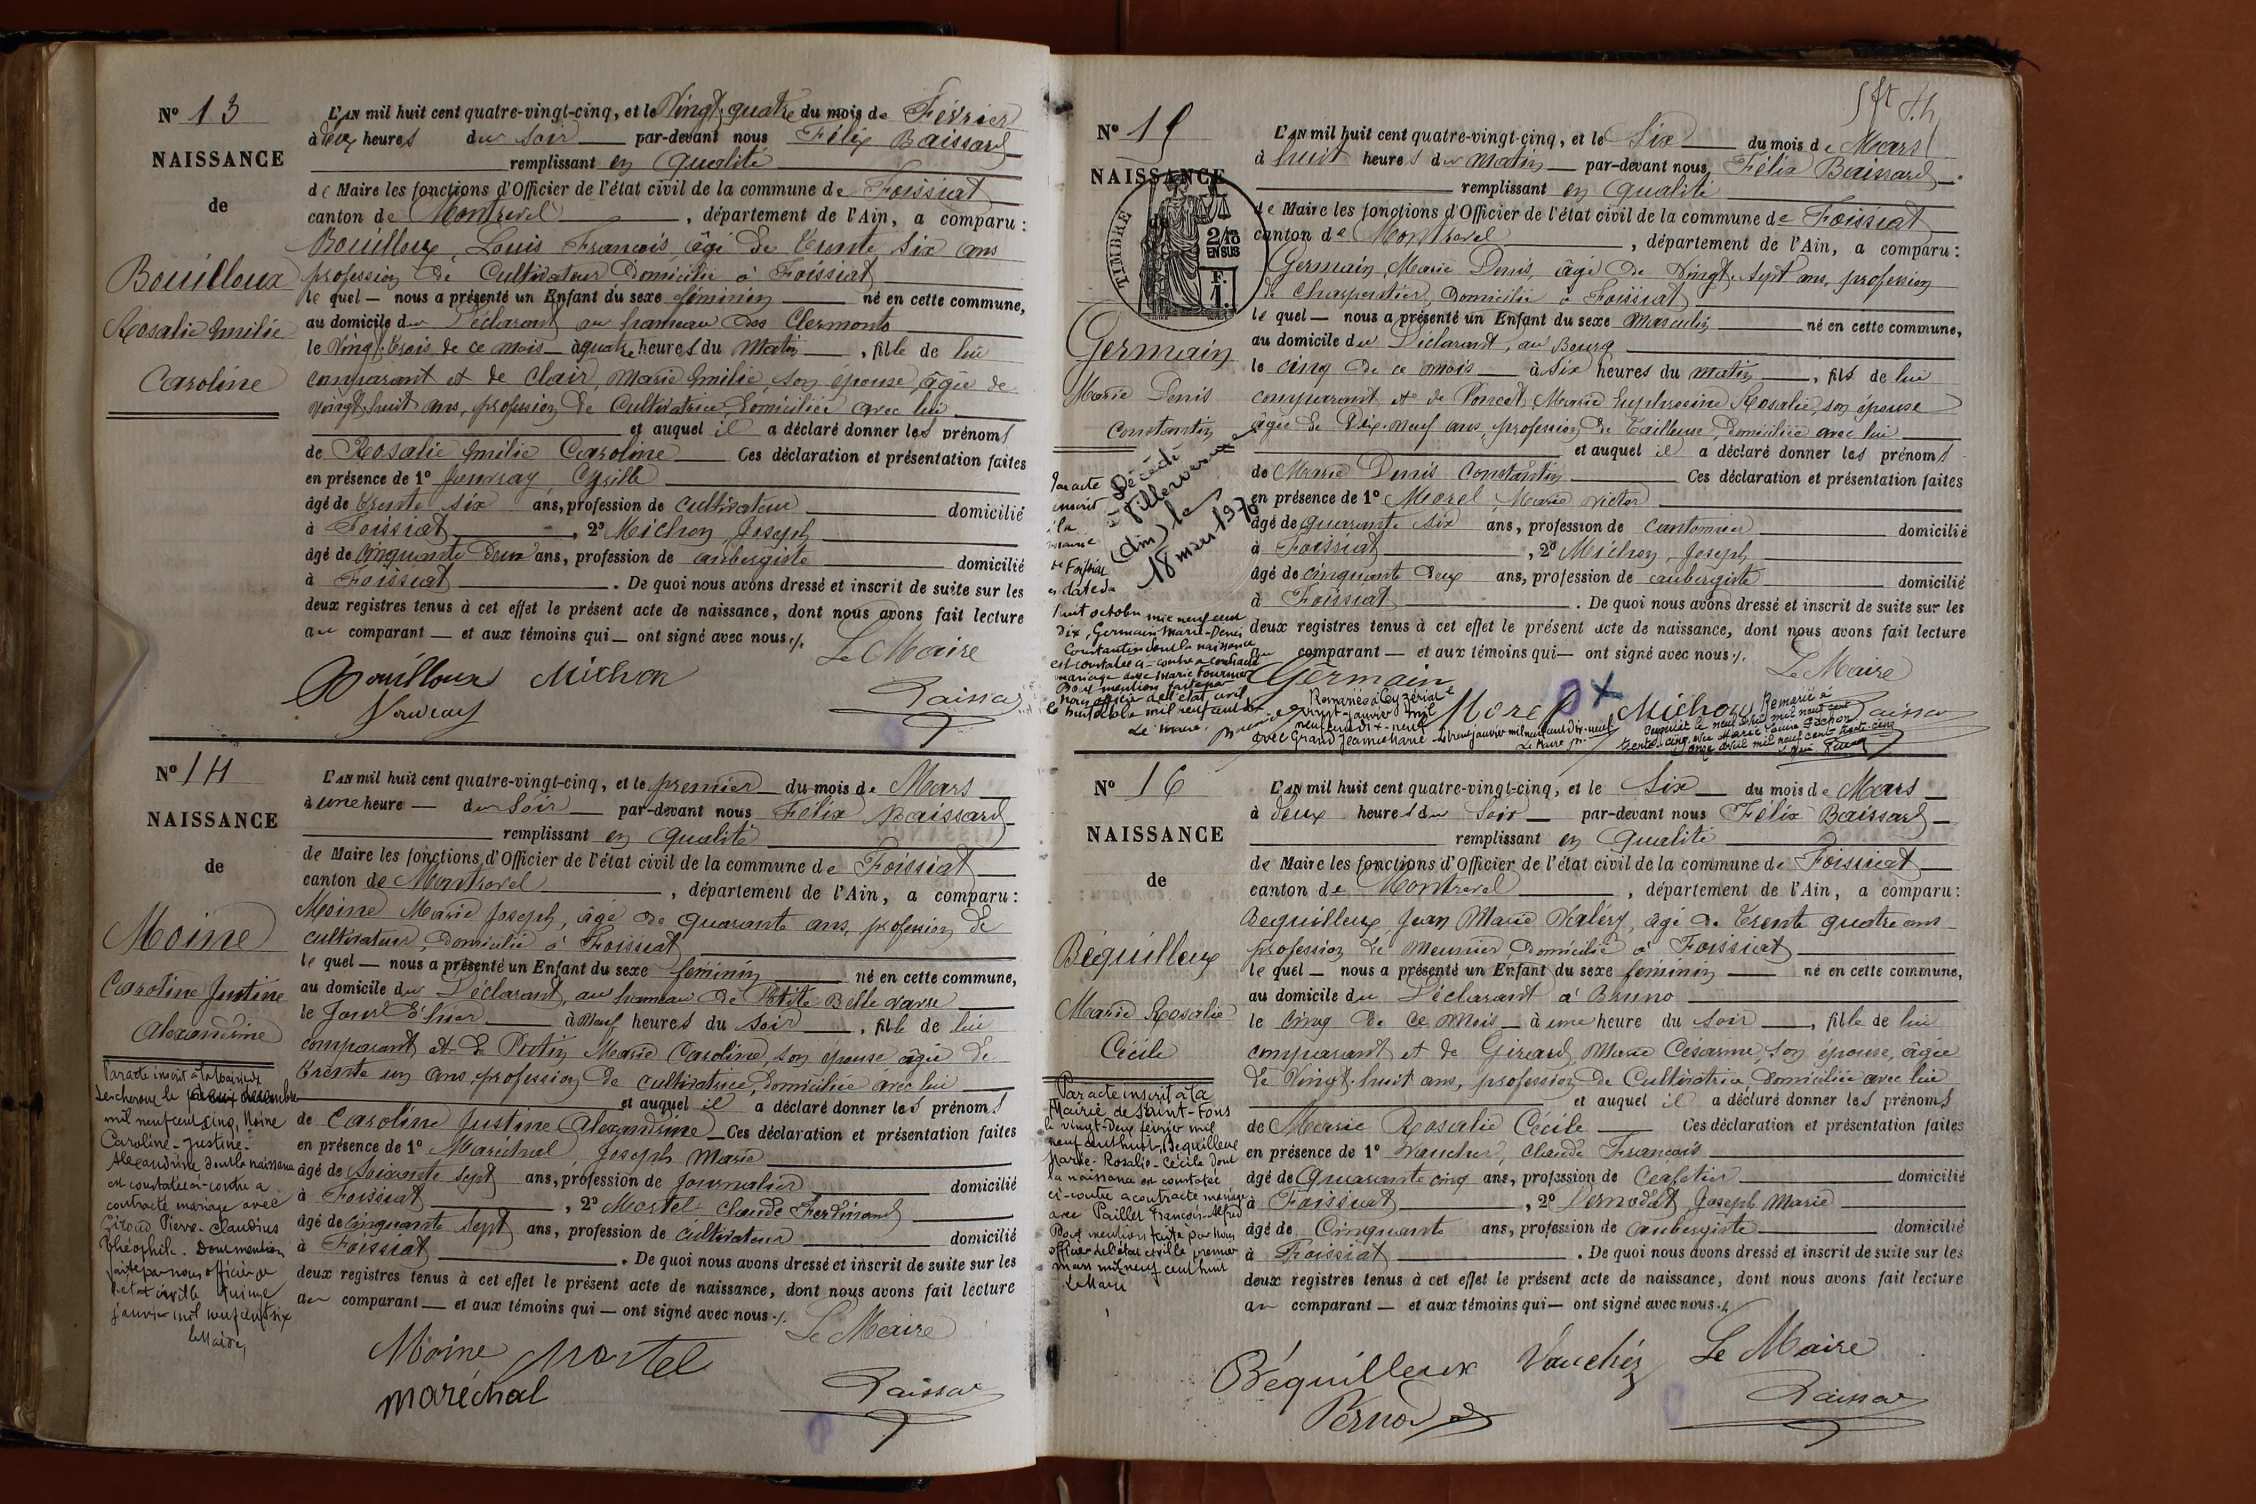 Nº 13
NAISSANCE
de
Bouilloux
Rosalie Emilie
Caroline
L'AN mil huit cent quatre-vingt-cinq, et le Vingt-quatre du mois de Février
à deux heures du soir par-devant nous Félix Baissard
remplissant en qualité
de Maire les fonctions d'Officier de l'état civil de la commune de Foissiat
canton de Montrevel, département de l'Ain, a comparu:
Bouilloux, Louis François, âgé de trente six ans
profession de Cultivateur Domicilié à Foissiat
le quel nous a présenté un Enfant du sexe féminin né en cette commune,
au domicile du Déclarant au hameau des Clermonts
le Vingt-trois de ce mois à quatre heures du matin, fille de lui
comparant et de Clair, Marie Emilie, son épouse, âgée de
vingt-huit ans, profession de Cultivatrice, domiciliée avec lui
et auquel il a déclaré donner les prénoms
de Rosalie Emilie Caroline Ces déclaration et présentation faites
en présence de 1º Jouvray, Cyrille
âgé de trente six ans, profession de cultivateur domicilié
à Foissiat, 2º Michon, Joseph
âgé de cinquante deux ans, profession de aubergiste domicilié
à Foissiat. De quoi nous avons dressé et inscrit de suite sur les
deux registres tenus à cet effet le présent acte de naissance, dont nous avons fait lecture
au comparant et aux témoins qui ont signé avec nous ./.
Le Maire
Bouilloux Michon
Nº 14
NAISSANCE
de
Moine
Caroline Justine
Alexandrine
L'AN mil huit cent quatre-vingt-cinq, et le premier du mois de Mars
à une heure du Soir par-devant nous Félix Baissard
remplissant en qualité
de Maire les fonctions d'Officier de l'état civil de la commune de Foissiat
canton de Montrevel, département de l'Ain, a comparu:
Moine Marie Joseph, âgé de quarante ans, profession de
cultivateur, Domicilié à Foissiat
le quel nous a présenté un Enfant du sexe féminin né en cette commune,
au domicile du Déclarant, au hameau de Petite Belle
le jour d'hier à neuf heures du soir, fille de lui
comparant et de Putin Marie Caroline, son épouse âgée de
trente un ans, profession de cultivatrice, domiciliée avec lui
et auquel il a déclaré donner les prénoms
de Caroline Justine Alexandrine Ces déclaration et présentation faites
en présence de 1º Maréchal, Joseph Marie
âgé de soixante sept ans, profession de journalier domicilié
à Foissiat, 2º Mortel Claude Ferdinand
âgé de cinquante sept ans, profession de cultivateur domicilié
à Foissiat. De quoi nous avons dressé et inscrit de suite sur les
deux registres tenus à cet effet le présent acte de naissance, dont nous avons fait lecture
au comparant et aux témoins qui ont signé avec nous ./.
Le Maire
Moine Mortel
Maréchal
Par acte inscrit à la Mairie de
Lescheroux le décembre
mil neuf cent cinq, Moine
Caroline-Justine-
Alexandrine dont la naissance
est constatée ci-contre a
contracté mariage avec
Giroud Pierre-Claudius
Théophile. Dont mention
faite par nous officier de
l'état civil le quinze
janvier mil neuf cent six
le Maire,
Nº 15
NAISSANCE
de
TIMBRE
2/10
EN SUS
F.
1.
Germain
Marie Denis
Constantin
L'AN mil huit cent quatre-vingt-cinq, et le Six du mois de Mars
à huit heures du matin par-devant nous Félix Baissard
remplissant en qualité
de Maire les fonctions d'Officier de l'état civil de la commune de Foissiat
canton de Montrevel, département de l'Ain, a comparu:
Germain, Marie Denis, âgé de Vingt-sept ans, profession
de charpentier, domicilié à Foissiat
le quel nous a présenté un Enfant du sexe masculin né en cette commune,
au domicile du Déclarant, au Bourg
le cinq de ce mois à six heures du matin, fils de lui
comparant et de Poncet, Marie Euphrosine Rosalie, son épouse
âgée de Dix-neuf ans, profession de tailleuse, domiciliée avec lui
et auquel il a déclaré donner les prénoms
de Marie Denis Constantin Ces déclaration et présentation faites
en présence de 1º Morel, Marie Victor
âgé de quarante six ans, profession de cantonnier domicilié
à Foissiat, 2º Michon, Joseph
âgé de cinquante deux ans, profession de aubergiste domicilié
à Foissiat. De quoi nous avons dressé et inscrit de suite sur les
deux registres tenus à cet effet le présent acte de naissance, dont nous avons fait lecture
au comparant et aux témoins qui ont signé avec nous ./.
Le Maire
Germain Morel Michon
Décédé
à Villereversure
(Ain) le
18 mars 1970
Par acte
inscrit
à la
mairie
de Foissiat
en date du
huit octobre mil neuf cent
dix, Germain Marie-Denis
Constantin dont la naissance
est constatée ci-contre a contracté
mariage avec Marie Fournier
Dont mention faite par
nous officier de l'état civil
le huit octobre mil neuf cent dix
Le Maire,
Remarié à Ceyzériat le
vingt janvier mil
neuf cent dix-neuf
avec Grand Jeanne Marie
Le Maire
Remarié à
Nº 16
NAISSANCE
de
Béquilleux
Marie Rosalie
Cécile
L'AN mil huit cent quatre-vingt-cinq, et le Six du mois de Mars
à deux heures du Soir par-devant nous Félix Baissard
remplissant en qualité
de Maire les fonctions d'Officier de l'état civil de la commune de Foissiat
canton de Montrevel, département de l'Ain, a comparu:
Bequilleux Jean Marie Valéry, âgé de trente quatre ans
profession de Meunier, Domicilié à Foissiat
le quel nous a présenté un Enfant du sexe féminin né en cette commune,
au domicile du Déclarant à Bruno
le cinq de ce mois à une heure du soir, fille de lui
comparant et de Girard, Marie Césarine, son épouse, âgée
de Vingt-huit ans, profession de Cultivatrice, domiciliée avec lui
et auquel il a déclaré donner les prénoms
de Marie Rosalie Cécile Ces déclaration et présentation faites
en présence de 1º Vaucher, Claude François
âgé de Quarante cinq ans, profession de Cafetier domicilié
à Foissiat, 2º Pernodat, Joseph Marie
âgé de Cinquante ans, profession de aubergiste domicilié
à Foissiat. De quoi nous avons dressé et inscrit de suite sur les
deux registres tenus à cet effet le présent acte de naissance, dont nous avons fait lecture
au comparant et aux témoins qui ont signé avec nous ./.
Béquilleux Le Maire
Par acte inscrit à la
Mairie de Saint-Fons
le vingt-deux février mil
neuf cent huit, Bequilleux
Marie-Rosalie-Cécile dont
la naissance est constatée
ci-contre a contracté mariage
avec Paillet François-Alfred
Dont mention faite par nous
officier de l'état civil le premier
mars mil neuf cent huit
Le Maire